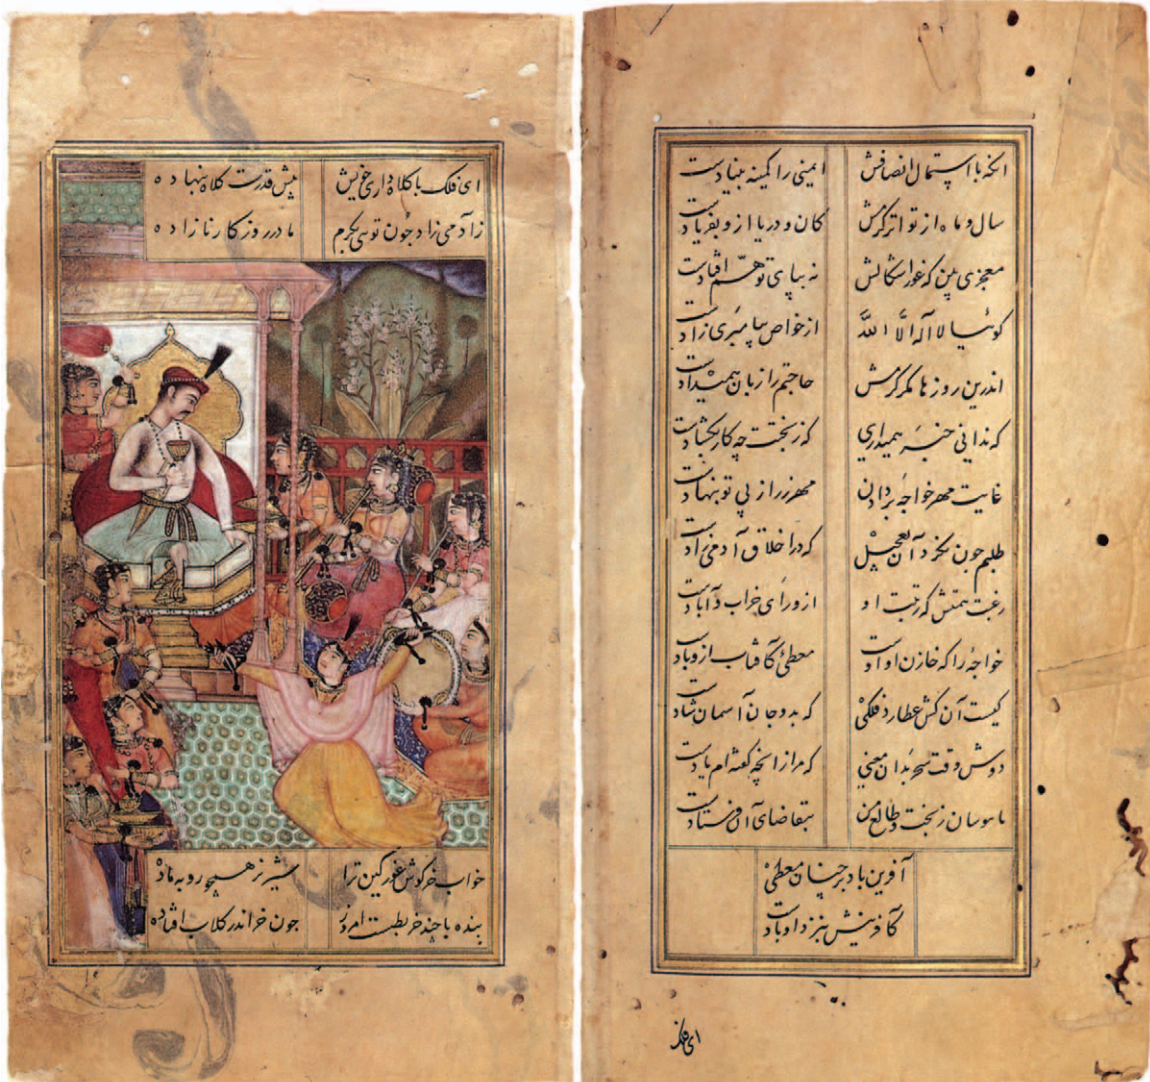 انکه با استمال انصافش ایمنی را کمینه بنیادست
سال و ماه از تواتر کرمش کان و دریا ازو بفریادست
معجزی بین که غور اشکالش نه بپای توهّم افتادست
کوئیا لا اله الّا اللّه از خواص پیامبری زادست
اندرین روزها مکر کرمش حاجتم را زبان همیدادست
که ندانی خبر همیداری که زبخت چه کار بکشادست
غایت مهر خواجهٔ مهر زر از پی تو بنهادست
طلبم چون نکرد آن تعجیل که در اخلاق آدمی زادست
رغبت همتش که رتبت او از ورای خراب و آبادست
خواجهٔ را که خازن او اوست معطئ کافتاب ازو
کیست آن کش عطارد فلکی که بدو جان آسمان شادست
دوش وقت سحر بدان معنی که مرا زانچه کفته ام یادست
زبخت و طالع من بتقاضای آن فرستادست
آفرین باد بر چنان معطی
کافرینش بنزد او بادست
ای فلک
ای فلک با کلاه داری خویش پیش قدرت کلاه بنهاده
زآدمی زاد چون توئی بکرم مادر روزکار نازاده
خواب خرکوش غور کین ترا شیر نر همچو روبه ماده
بنده با چند خربطست امروز چون خر اندر کلاب افتاده